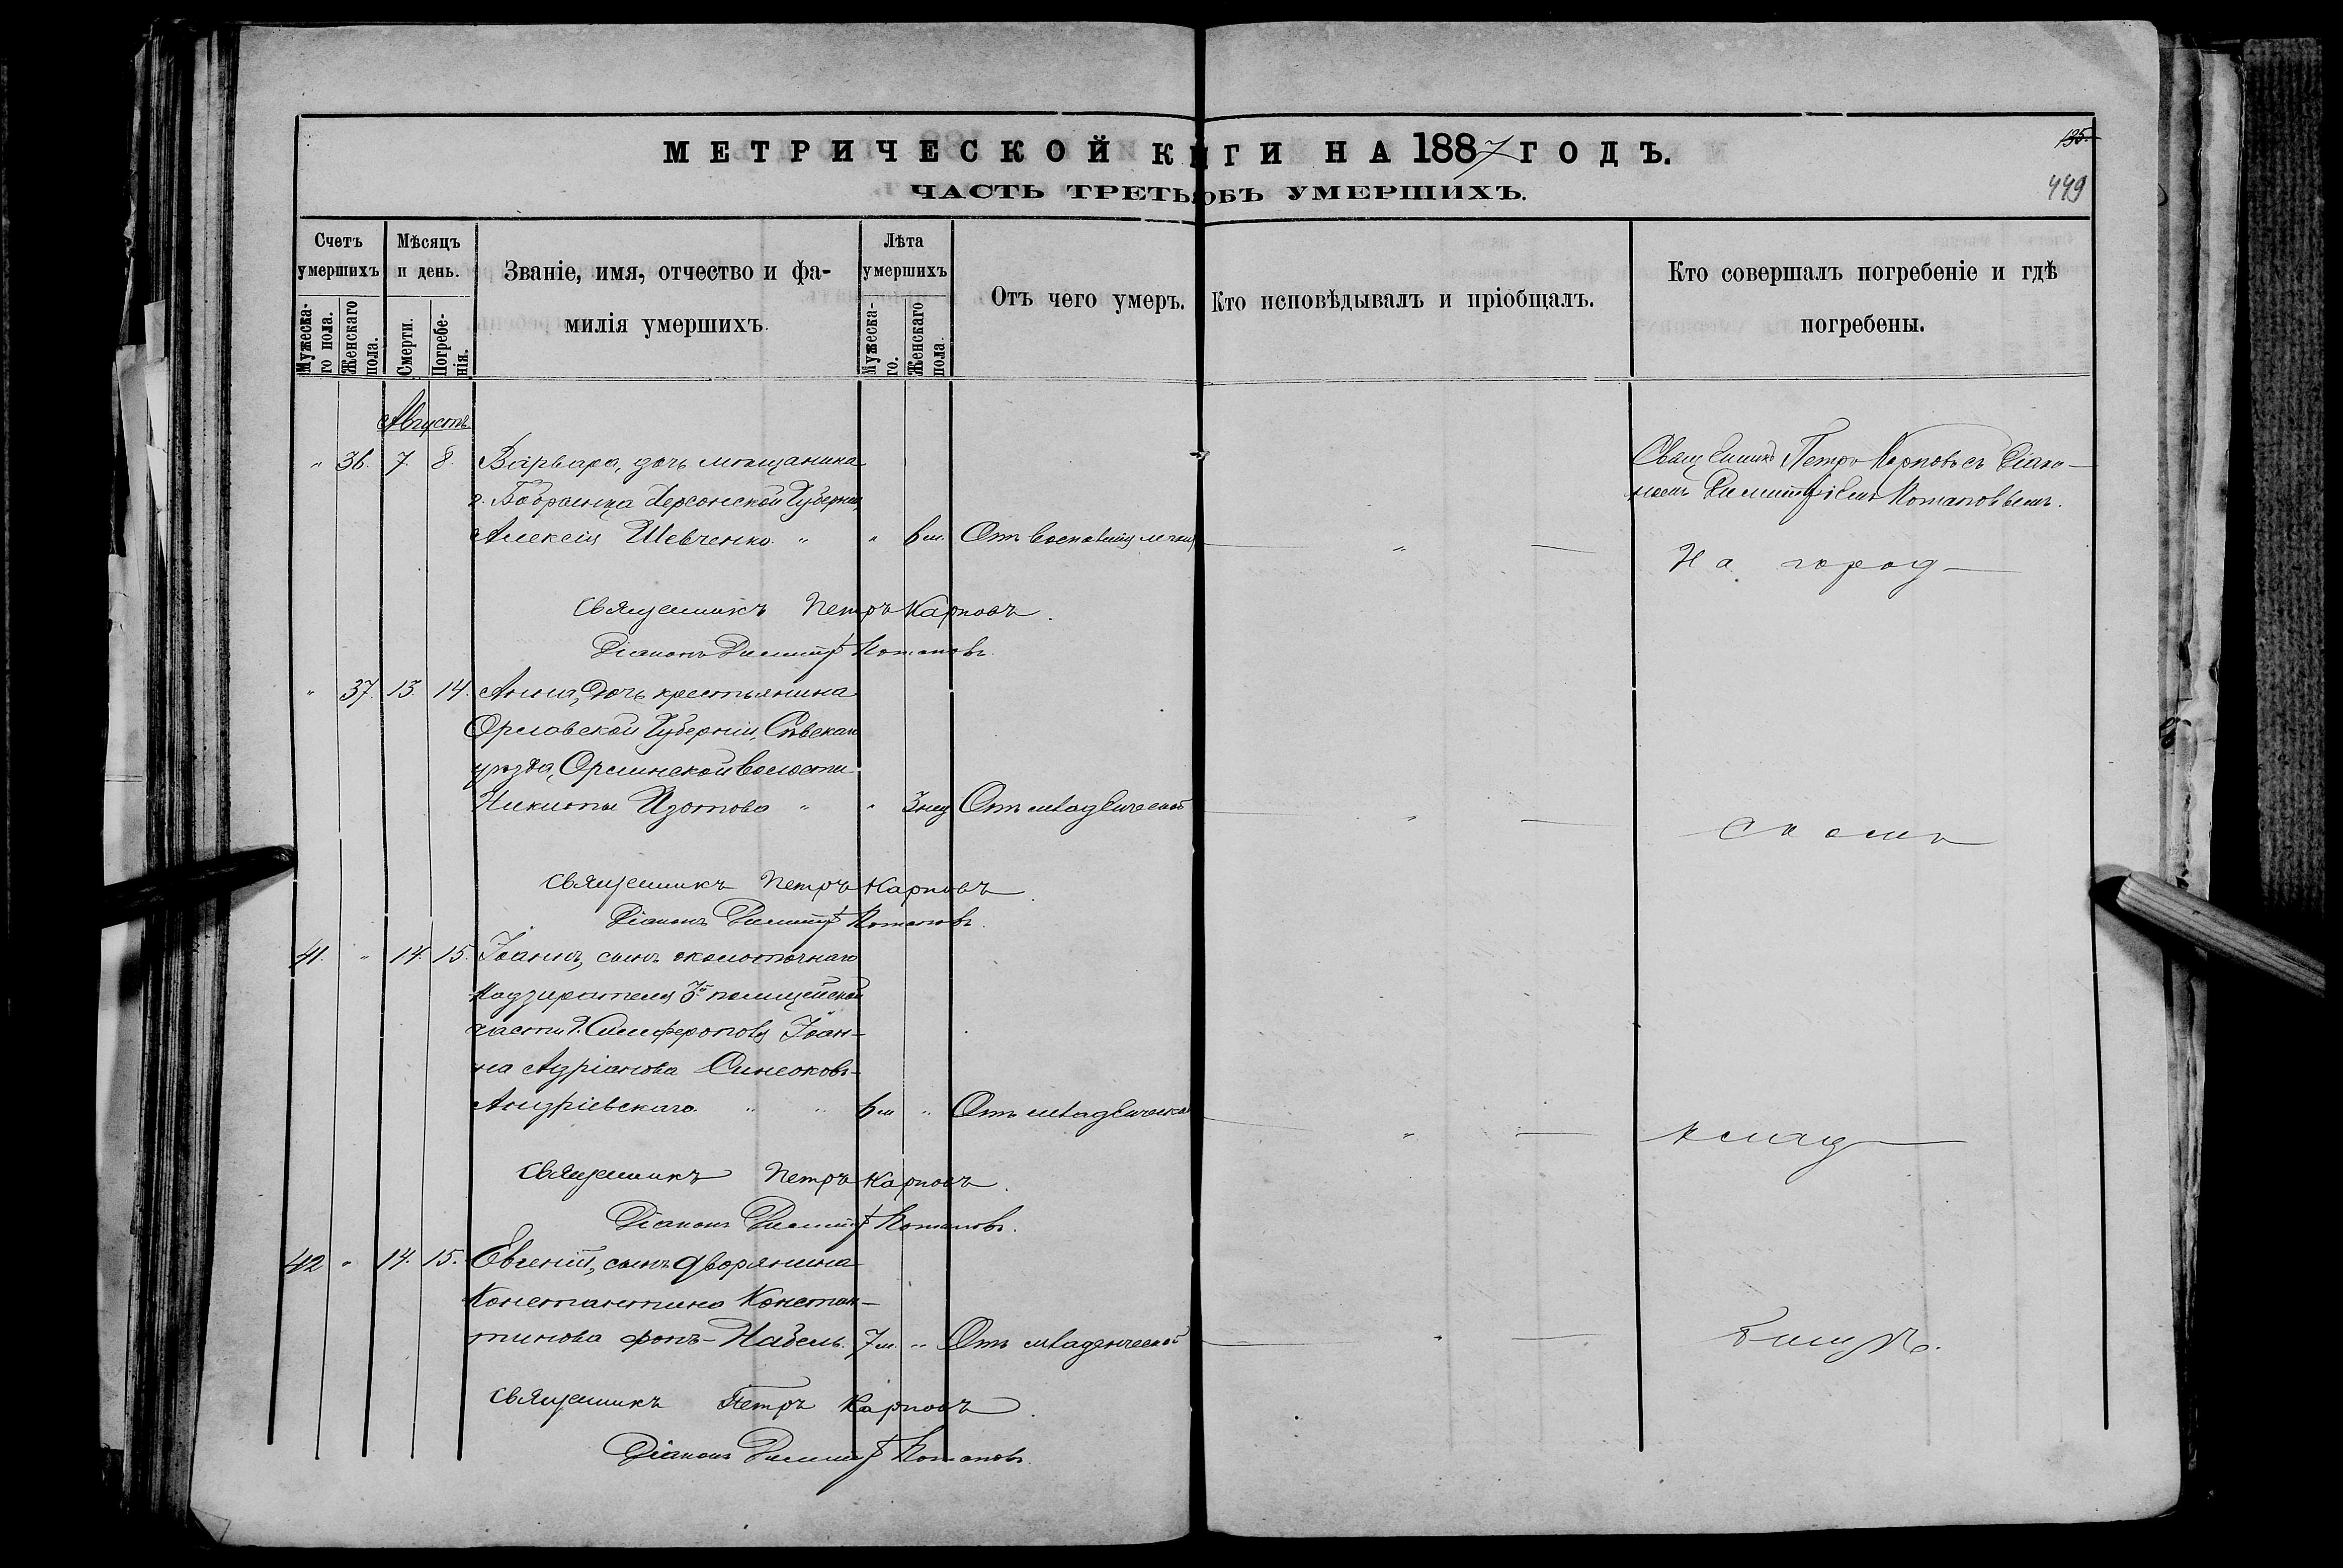 МЕТРИЧЕСКОЙ КНИГИ НА 1887 ГОДЪ.
135.
449
ЧАСТЬ ТРЕТЬЯ ОБЪ УМЕРШИХЪ.
Счетъ умершихъ
Мужеска-го пола.
Женскаго пола.
Мѣсяцъ и день.
Смерти.
Погребе-нія.
Званіе, имя, отчество и фа-
милія умершихъ.
Лѣта умершихъ
Мужеска-го.
Женскаго пола.
Отъ чего умеръ.
Кто исповѣдывалъ и пріобщалъ.
Кто совершалъ погребеніе и гдѣ
погребены.
Августъ
" 36. 7. 8. Варвара, дочь мѣщанина
г. Бобринца Херсонской Губерніи,
Алексія Шевченко. " " 6 м. Отъ воспаленія легкихъ
Священникъ Петръ Карповъ съ Діако-
номъ Димитріемъ Потаповымъ.
На город-
Священникъ Петръ Карповъ.
Діаконъ Димитр Потаповъ.
" 37. 13. 14. Анна, дочь крестьянина
Орловской Губерніи, Сѣвскаго
уѣзда, волости
Никиты Изотова " " 3 нед Отъ младенческой
скомъ
Священникъ Петръ Карповъ.
Діаконъ Димитр Потаповъ.
41. " 14. 15. Іоаннъ, сынъ околоточнаго
надзирателя 3й полицейской
части г. Симферополя Іоан-
на Андріанова Синеоковъ-
Андріевскаго. " " 6 м " Отъ младенческой
клад-
Священникъ Петръ Карповъ.
Діаконъ Димитр Потаповъ.
42 " 14. 15. Евгеній, сынъ дворянина
Константина Констан-
тинова фонъ-Набель. 7 м. " Отъ младенческой
бищѣ.
Священникъ Петръ Карповъ.
Діаконъ Димитр Потаповъ.